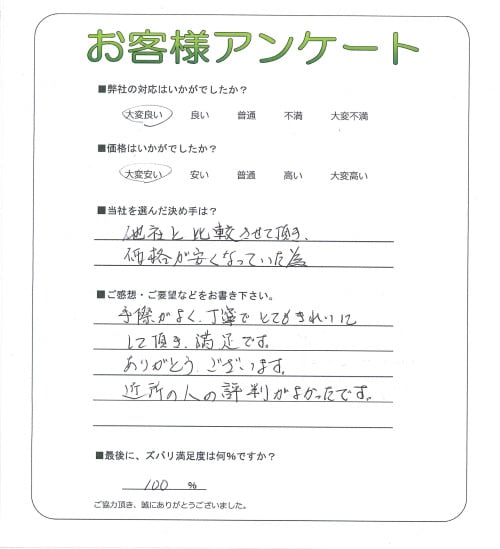 お客様アンケート
■弊社の対応はいかがでしたか？
大変良い 良い 普通 不満 大変不満
■価格はいかがでしたか？
大変安い 安い 普通 高い 大変高い
■当社を選んだ決め手は？
他社と比較させて頂き、
価格が安くなっていた為
■ご感想・ご要望などをお書き下さい。
手際がよく、丁寧でとてもきれいに
して頂き、満足です。
ありがとうございます。
近所の人の評判がよかったです。
■最後に、ズバリ満足度は何％ですか？
100 ％
ご協力頂き、誠にありがとうございました。